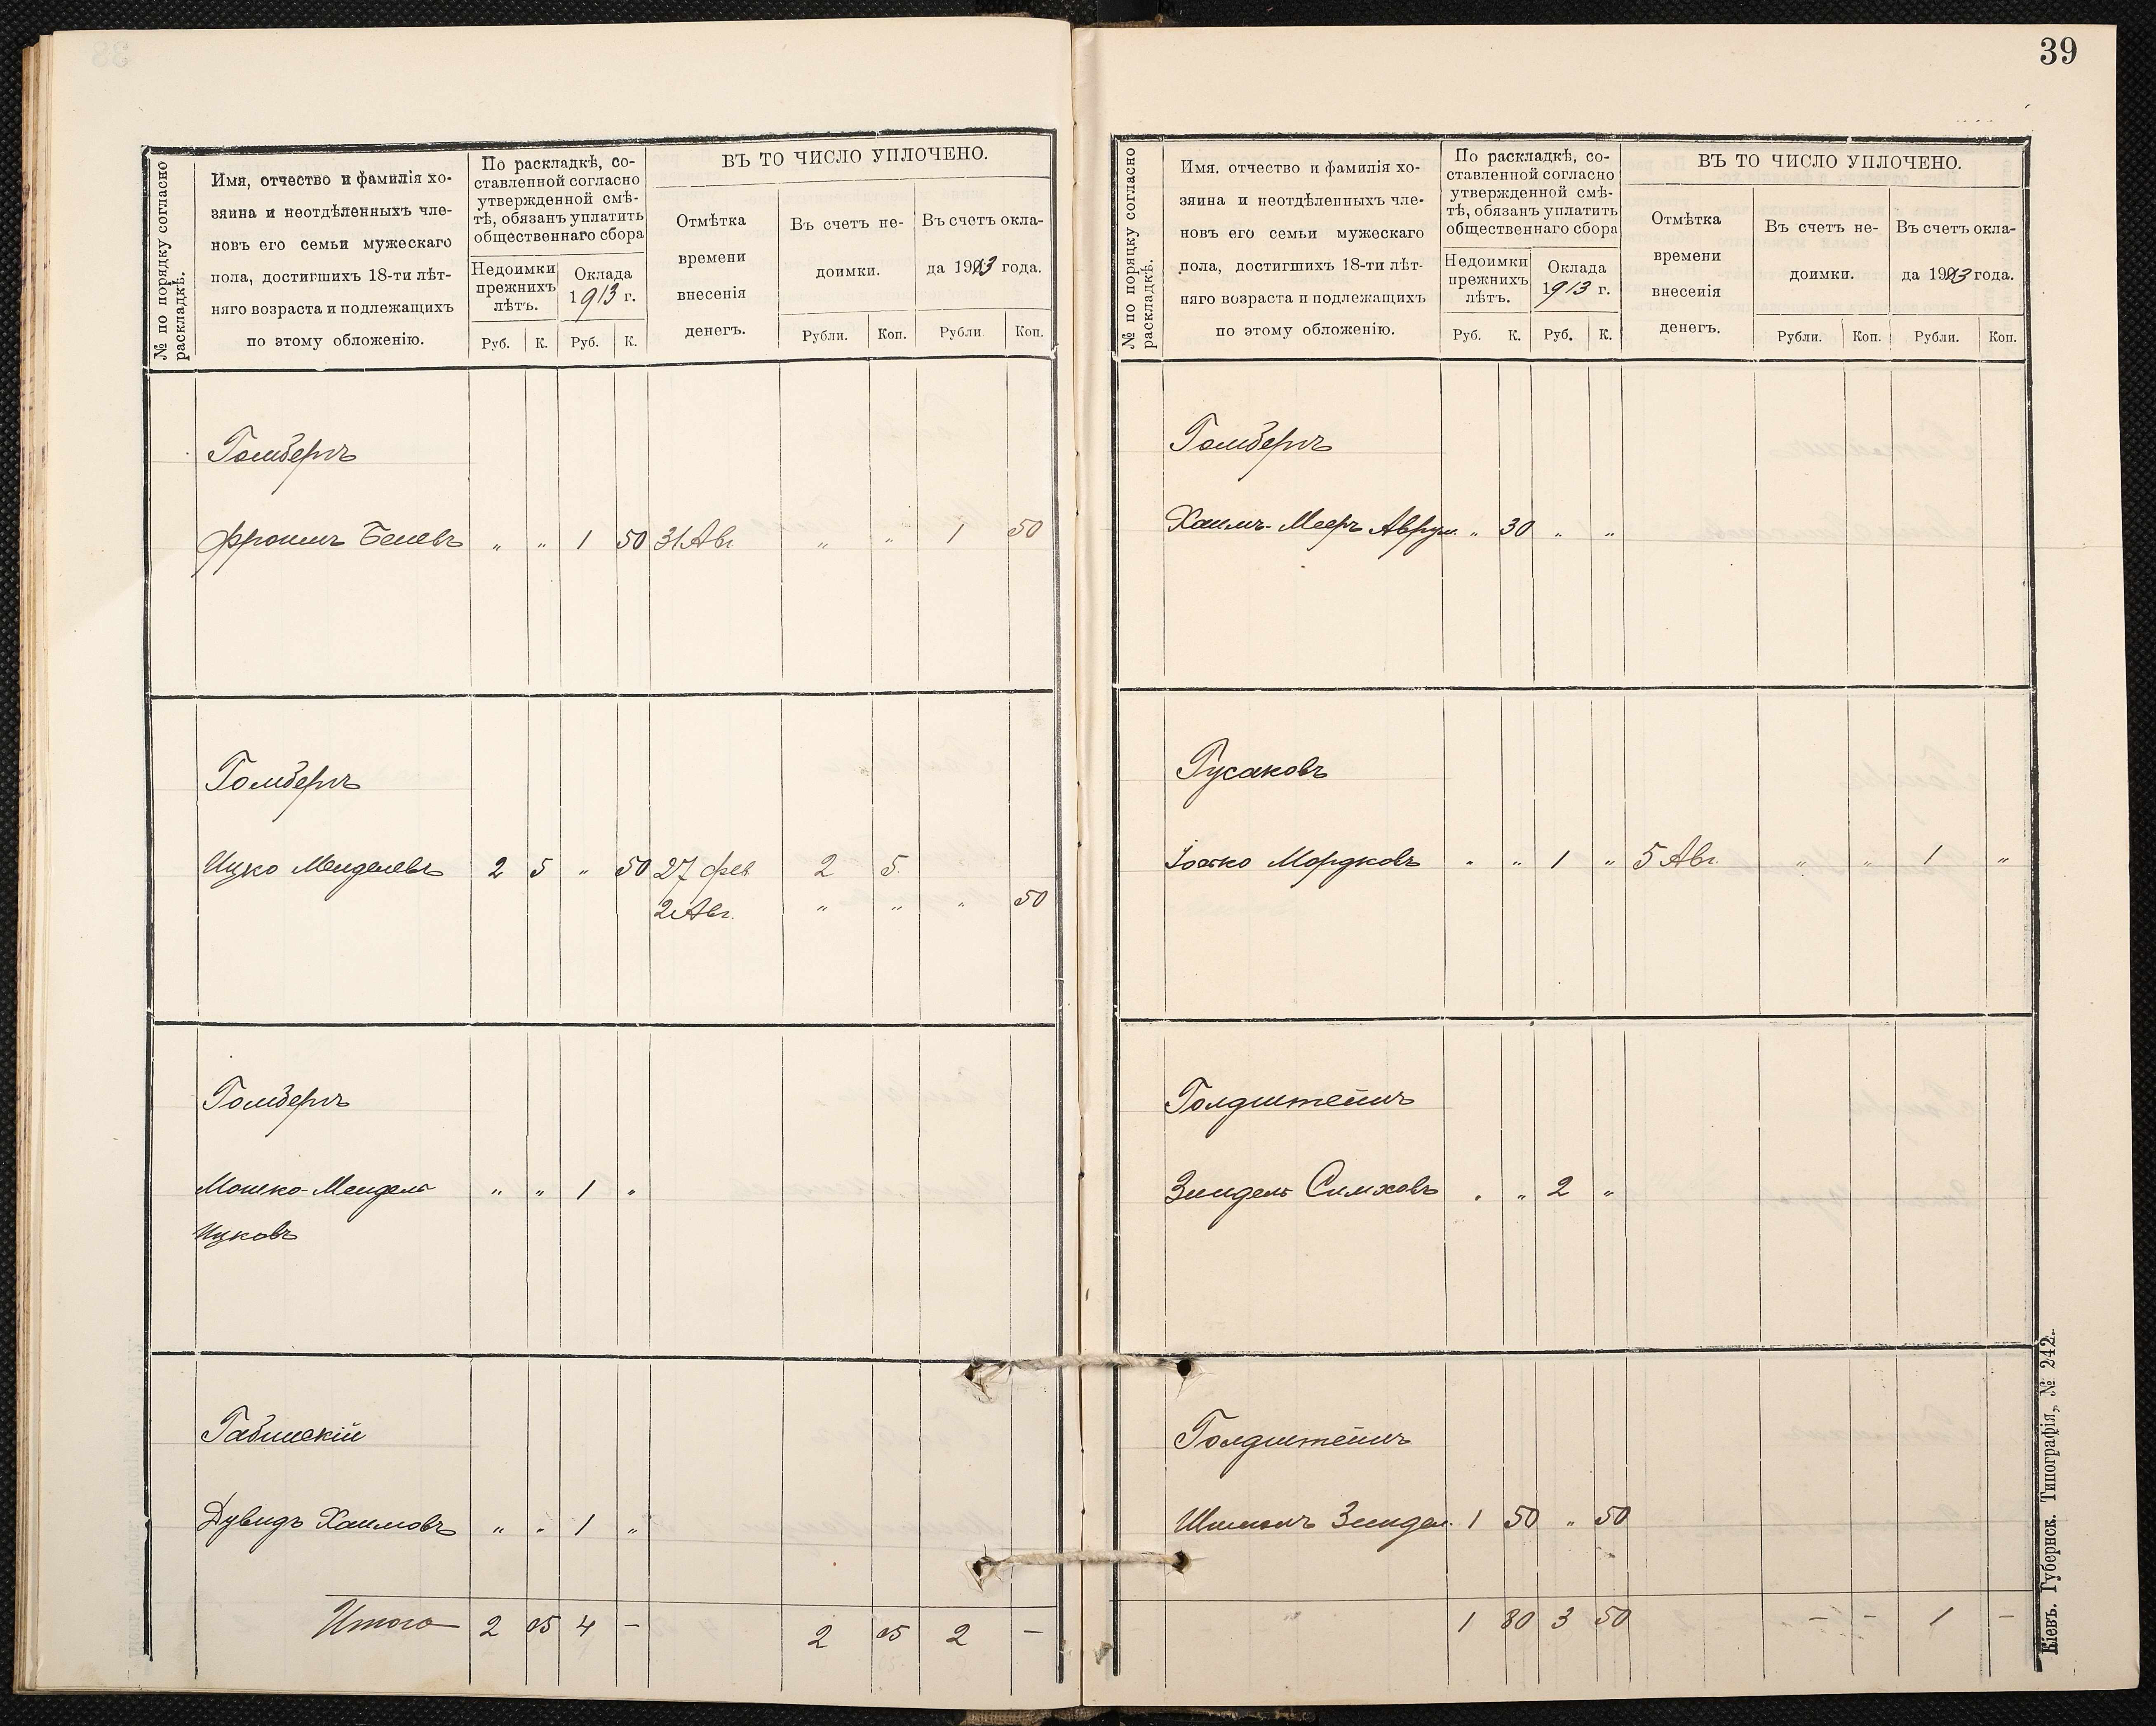 39
№ по порядку согласно раскладкѣ.
Имя, отчество и фамилія хо-
зяина и неотдѣленныхъ чле-
новъ его семьи мужескаго
пола, достигшихъ 18-ти лѣт-
няго возраста и подлежащихъ
по этому обложенію.
По раскладкѣ, со-
ставленной согласно
утвержденной смѣ-
тѣ, обязанъ уплатить
общественнаго сбора
Недоимки
прежнихъ
лѣтъ.
Оклада
1913 г.
Руб. К. Руб. К.
ВЪ ТО ЧИСЛО УПЛОЧЕНО.
Отмѣтка
времени
внесенія
денегъ.
Въ счетъ не-
доимки.
Въ счетъ окла-
да 1913 года.
Рубли. Коп. Рубли Коп.
Гомбергъ
Фроимъ Беневъ " " 1 50 31 Авг " " 1 50
Гомбергъ
Ицко Менделевъ 2 5 " 50 27 фев 2 5.
2 Авг. " " " 50
Гомбергъ
Мошко-Мендель " " 1 "
Ицковъ
Габинскій
Дувидъ Хаимовъ " " 1 "
Итого 2 05 4 — 2 05 2 —
№ по порядку согласно раскладкѣ.
Имя, отчество и фамилія хо-
зяина и неотдѣленныхъ чле-
новъ его семьи мужескаго
пола, достигшихъ 18-ти лѣт-
няго возраста и подлежащихъ
по этому обложенію.
По раскладкѣ, со-
ставленной согласно
утвержденной смѣ-
тѣ, обязанъ уплатить
общественнаго сбора
Недоимки
прежнихъ
лѣтъ.
Оклада
1913 г.
Руб. К. Руб. К.
ВЪ ТО ЧИСЛО УПЛОЧЕНО.
Отмѣтка
времени
внесенія
денегъ.
Въ счетъ не-
доимки.
Въ счетъ окла-
да 1913 года.
Рубли. Коп. Рубли. Коп.
Гомбергъ
Хаимъ-Мееръ Аврум. " 30 " "
Русаковъ
Іосько Мордковъ " " 1 " 5 Авг. " " 1 "
Голдштейнъ
Зейдель Симховъ " " 2 "
Голдштейнъ
Шимонъ Зейдел. 1 50 " 50
" 1 80 3 50 — — 1 —
Кіевъ. Губернск. Типографія, № 242.